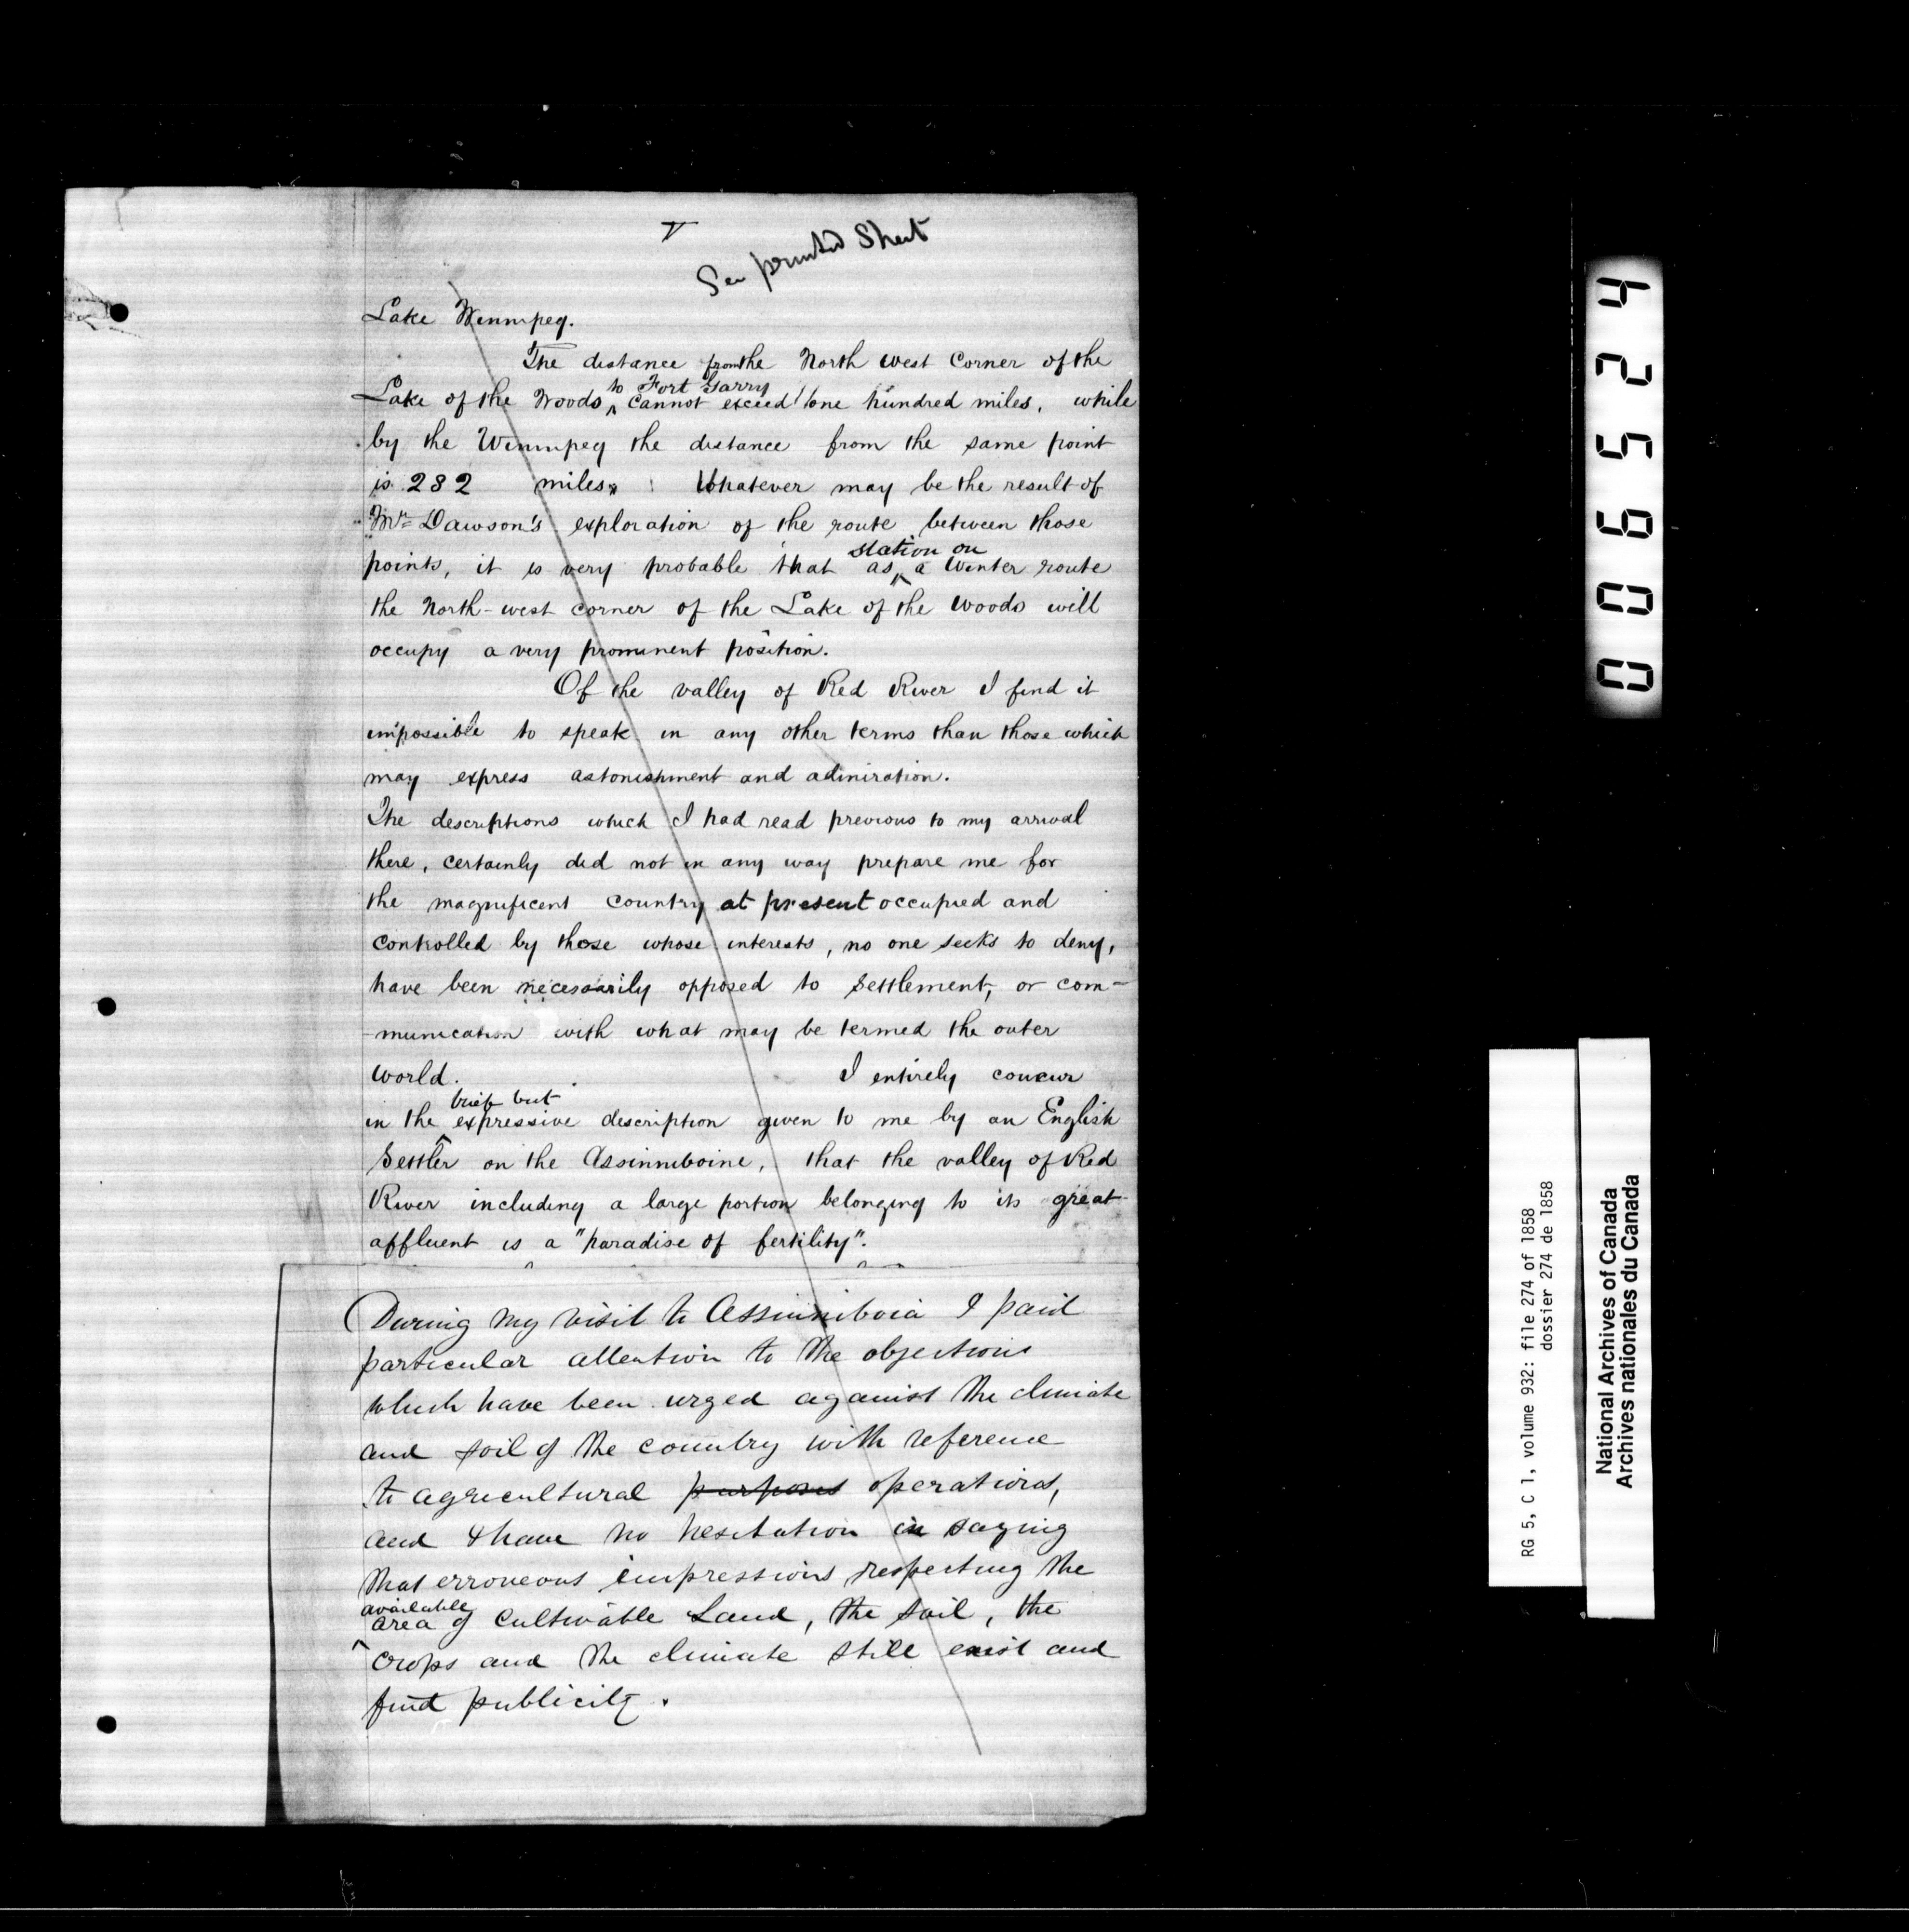 See printed Sheet
Lake Winnipeg.
The distance from the North west Corner of the
Lake of the Woods to Fort Garry cannot exceed one hundred miles, while
by the Winnipeg the distance from the same point
is 232 miles. Whatever may be the result of
Mr. Dawson's exploration of the route between those
points, it is very probable that as station on a Winter route
the North-west corner of the Lake of the Woods will
occupy a very prominent position.
Of the valley of Red River I find it
impossible to speak in any other terms than those which
may express astonishment and admiration.
The descriptions which I had read previous to my arrival
there, certainly did not in any way prepare me for
the magnificent country at present occupied and
controlled by those whose interests, no one seeks to deny,
have been necessarily opposed to Settlement, or com-
-munication with what may be termed the outer
world. I entirely concur
in the brief but expressive description given to me by an English
Settler on the Assinniboine, that the valley of Red
River including a large portion belonging to its great
affluent is a "paradise of fertility".
During my visit to Assinniboia I paid
particular attention to the objections
which have been urged against the climate
and soil of the country with reference
to agricultural purposes operations,
and I have no hesitation in saying
that erroneous impressions respecting the
available area of cultivable Land, the soil, the
crops and the climate still exist and
find publicity.
006524
RG 5, C 1, volume 932: file 274 of 1858
dossier 274 de 1858
National Archives of Canada
Archives nationales du Canada